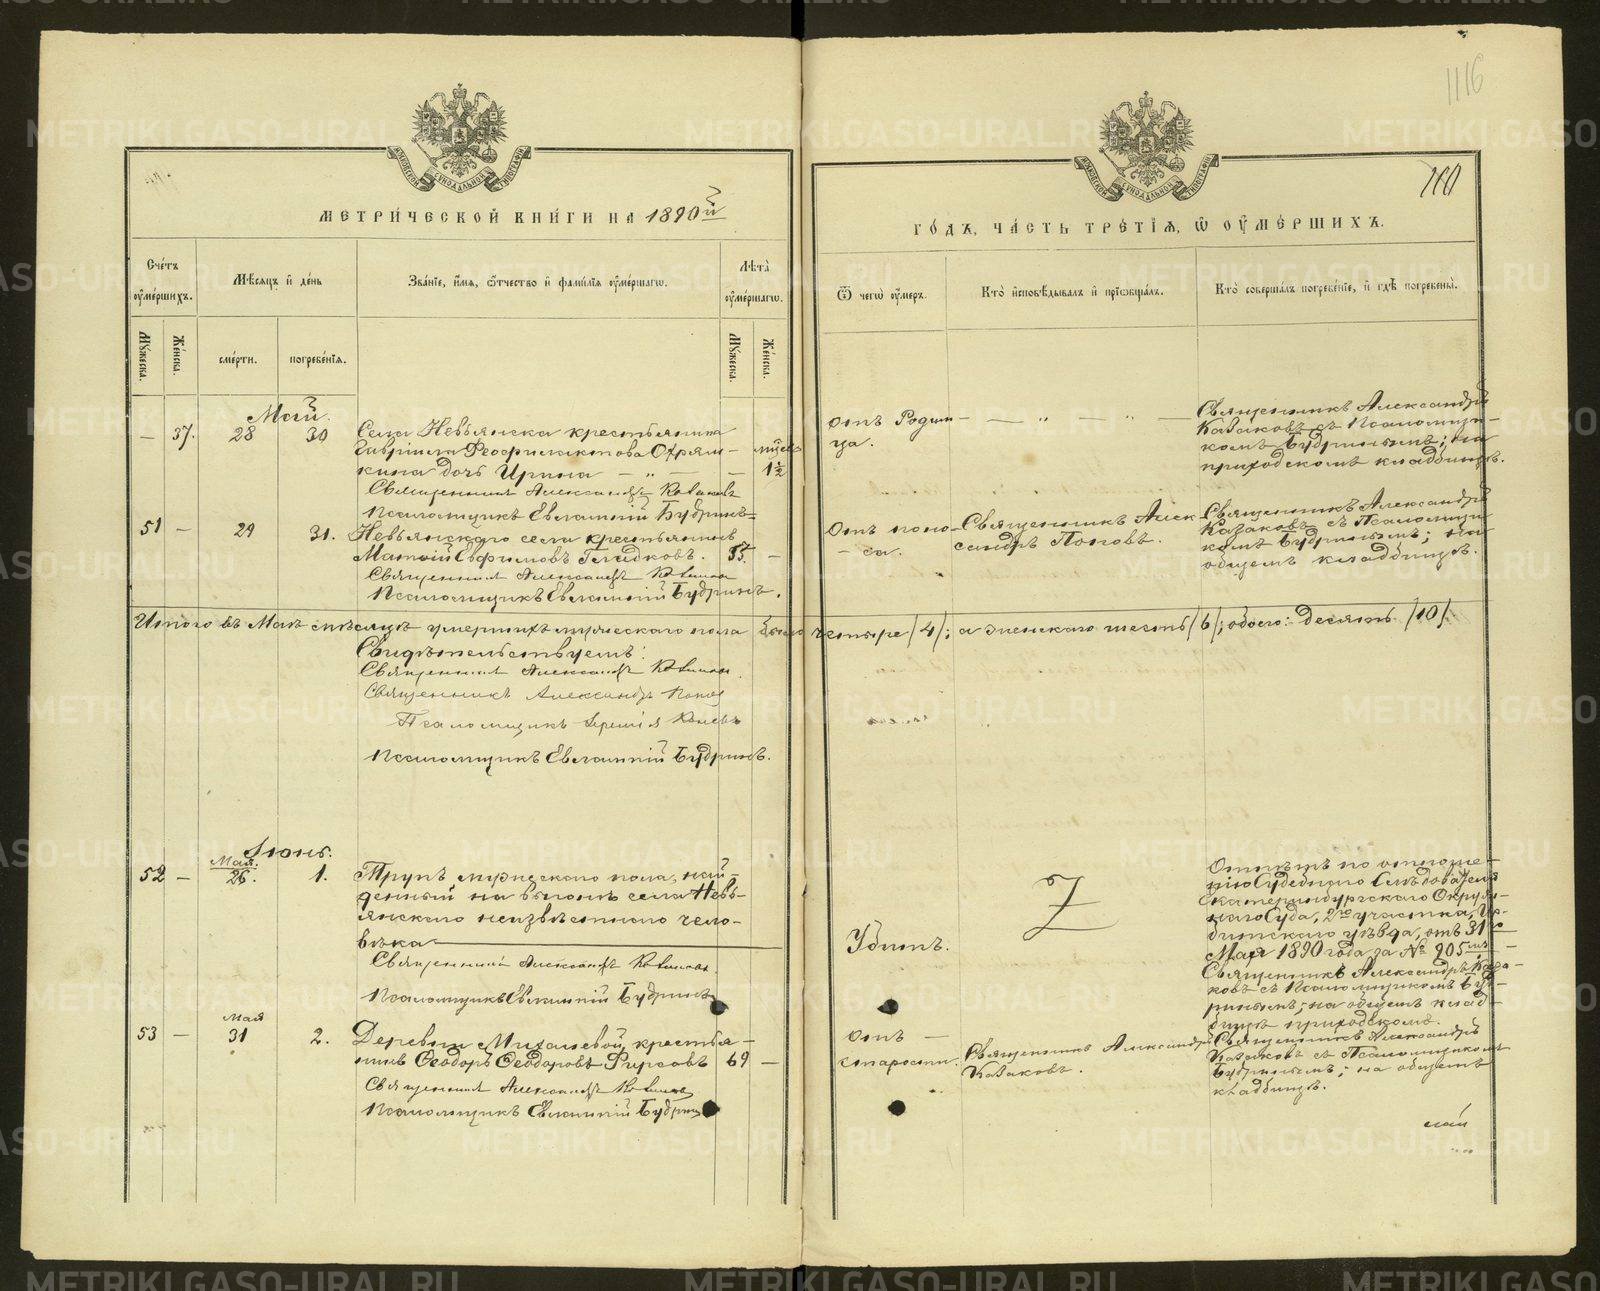 1116
110
МЕТРИ́ЧЕСКОЙ КНИ́ГИ НА 1890й
ГО́ДЪ, ЧА́СТЬ ТРЕ́ТІЯ, Ѿ ОУМЕ́РШИХЪ.
Сче́тъ оуме́ршихъ.
Мѣ́сяцъ и де́нь
Зва́ніе, и́мя, ѻ҆́тчество и фами́лія оуме́ршагѡ.
Лѣ́та оуме́ршагѡ.
Ѿ чегѡ̀ оу́меръ.
Кто̀ и҆сповѣ́дывалъ и прїѡбща́лъ.
Кто̀ соверша́лъ погребе́ніе, и гдѣ̀ погребены̀.
Мꙋ́жеска.
Же́нска.
сме́рти.
погребе́нїя.
Мꙋ́жеска.
Же́нска.
Май.
— 37. 28 30
Села Невьянска крестьянина
Гавріила Феофилактова Охрям-
кина дочь Ирина — " — —
мѣсяц
1½
Священникъ Александръ Казаковъ
Псаломщикъ Евлампій Будринъ
отъ Родим-
ца.
— " — " —
Священникъ Александръ
Казаковъ съ Псаломщи-
комъ Будринымъ; на
приходскомъ кладбищѣ.
51 — 29 31.
Невьянскаго села крестьянинъ
Матѳій Евфимовъ Гладковъ. 55. —
Священникъ Александръ Казаковъ
Псаломщикъ Евлампій Будринъ.
Отъ поно-
са.
Священникъ Алек-
сандръ Поповъ.
Священникъ Александръ
Казаковъ съ Псаломщи-
комъ Будринымъ; на
общемъ кладбищѣ.
Итого въ Маѣ мѣсяцѣ умершихъ мужескаго пола было четыре /4/; а женскаго шесть /6/; обоего: десять /10/.
Свидѣтельствуемъ:
Священникъ Александръ Казаковъ.
Священникъ Александръ Попов
Псаломщикъ
Псаломщикъ Евлампій Будринъ.
Іюнь.
Мая.
52 — 26. 1.
Трупъ мужескаго пола, най-
денный на выгонѣ села Невь-
янскаго неизвѣстнаго чело-
вѣка
Священникъ Александръ Казаковъ.
Псаломщикъ Евлампій Будринъ
Убитъ.
Z
Отпѣтъ по отноше-
нію Судебнаго Слѣдователя
Екатеринбургскаго Окруж-
наго Суда, 2го участка, Ир-
битскаго уѣзда, отъ 31го
Мая 1890 года за № 205мъ
Священникъ Александръ Каза-
ковъ съ Псаломщикомъ Буд-
ринымъ; на общемъ клад-
бищѣ приходскомъ.
Мая
53 — 31 2.
Деревни Михалевой крестья-
нинъ Ѳеодоръ Ѳеодоровъ Фирсовъ 69 —
Священникъ Александръ Казаковъ
Псаломщикъ Евлампій Будрин
отъ
старости.
Священникъ Александръ
Казаковъ.
Священникъ Александръ
Казаковъ съ Псаломщикомъ
Будринымъ; на общемъ
кладбищѣ.